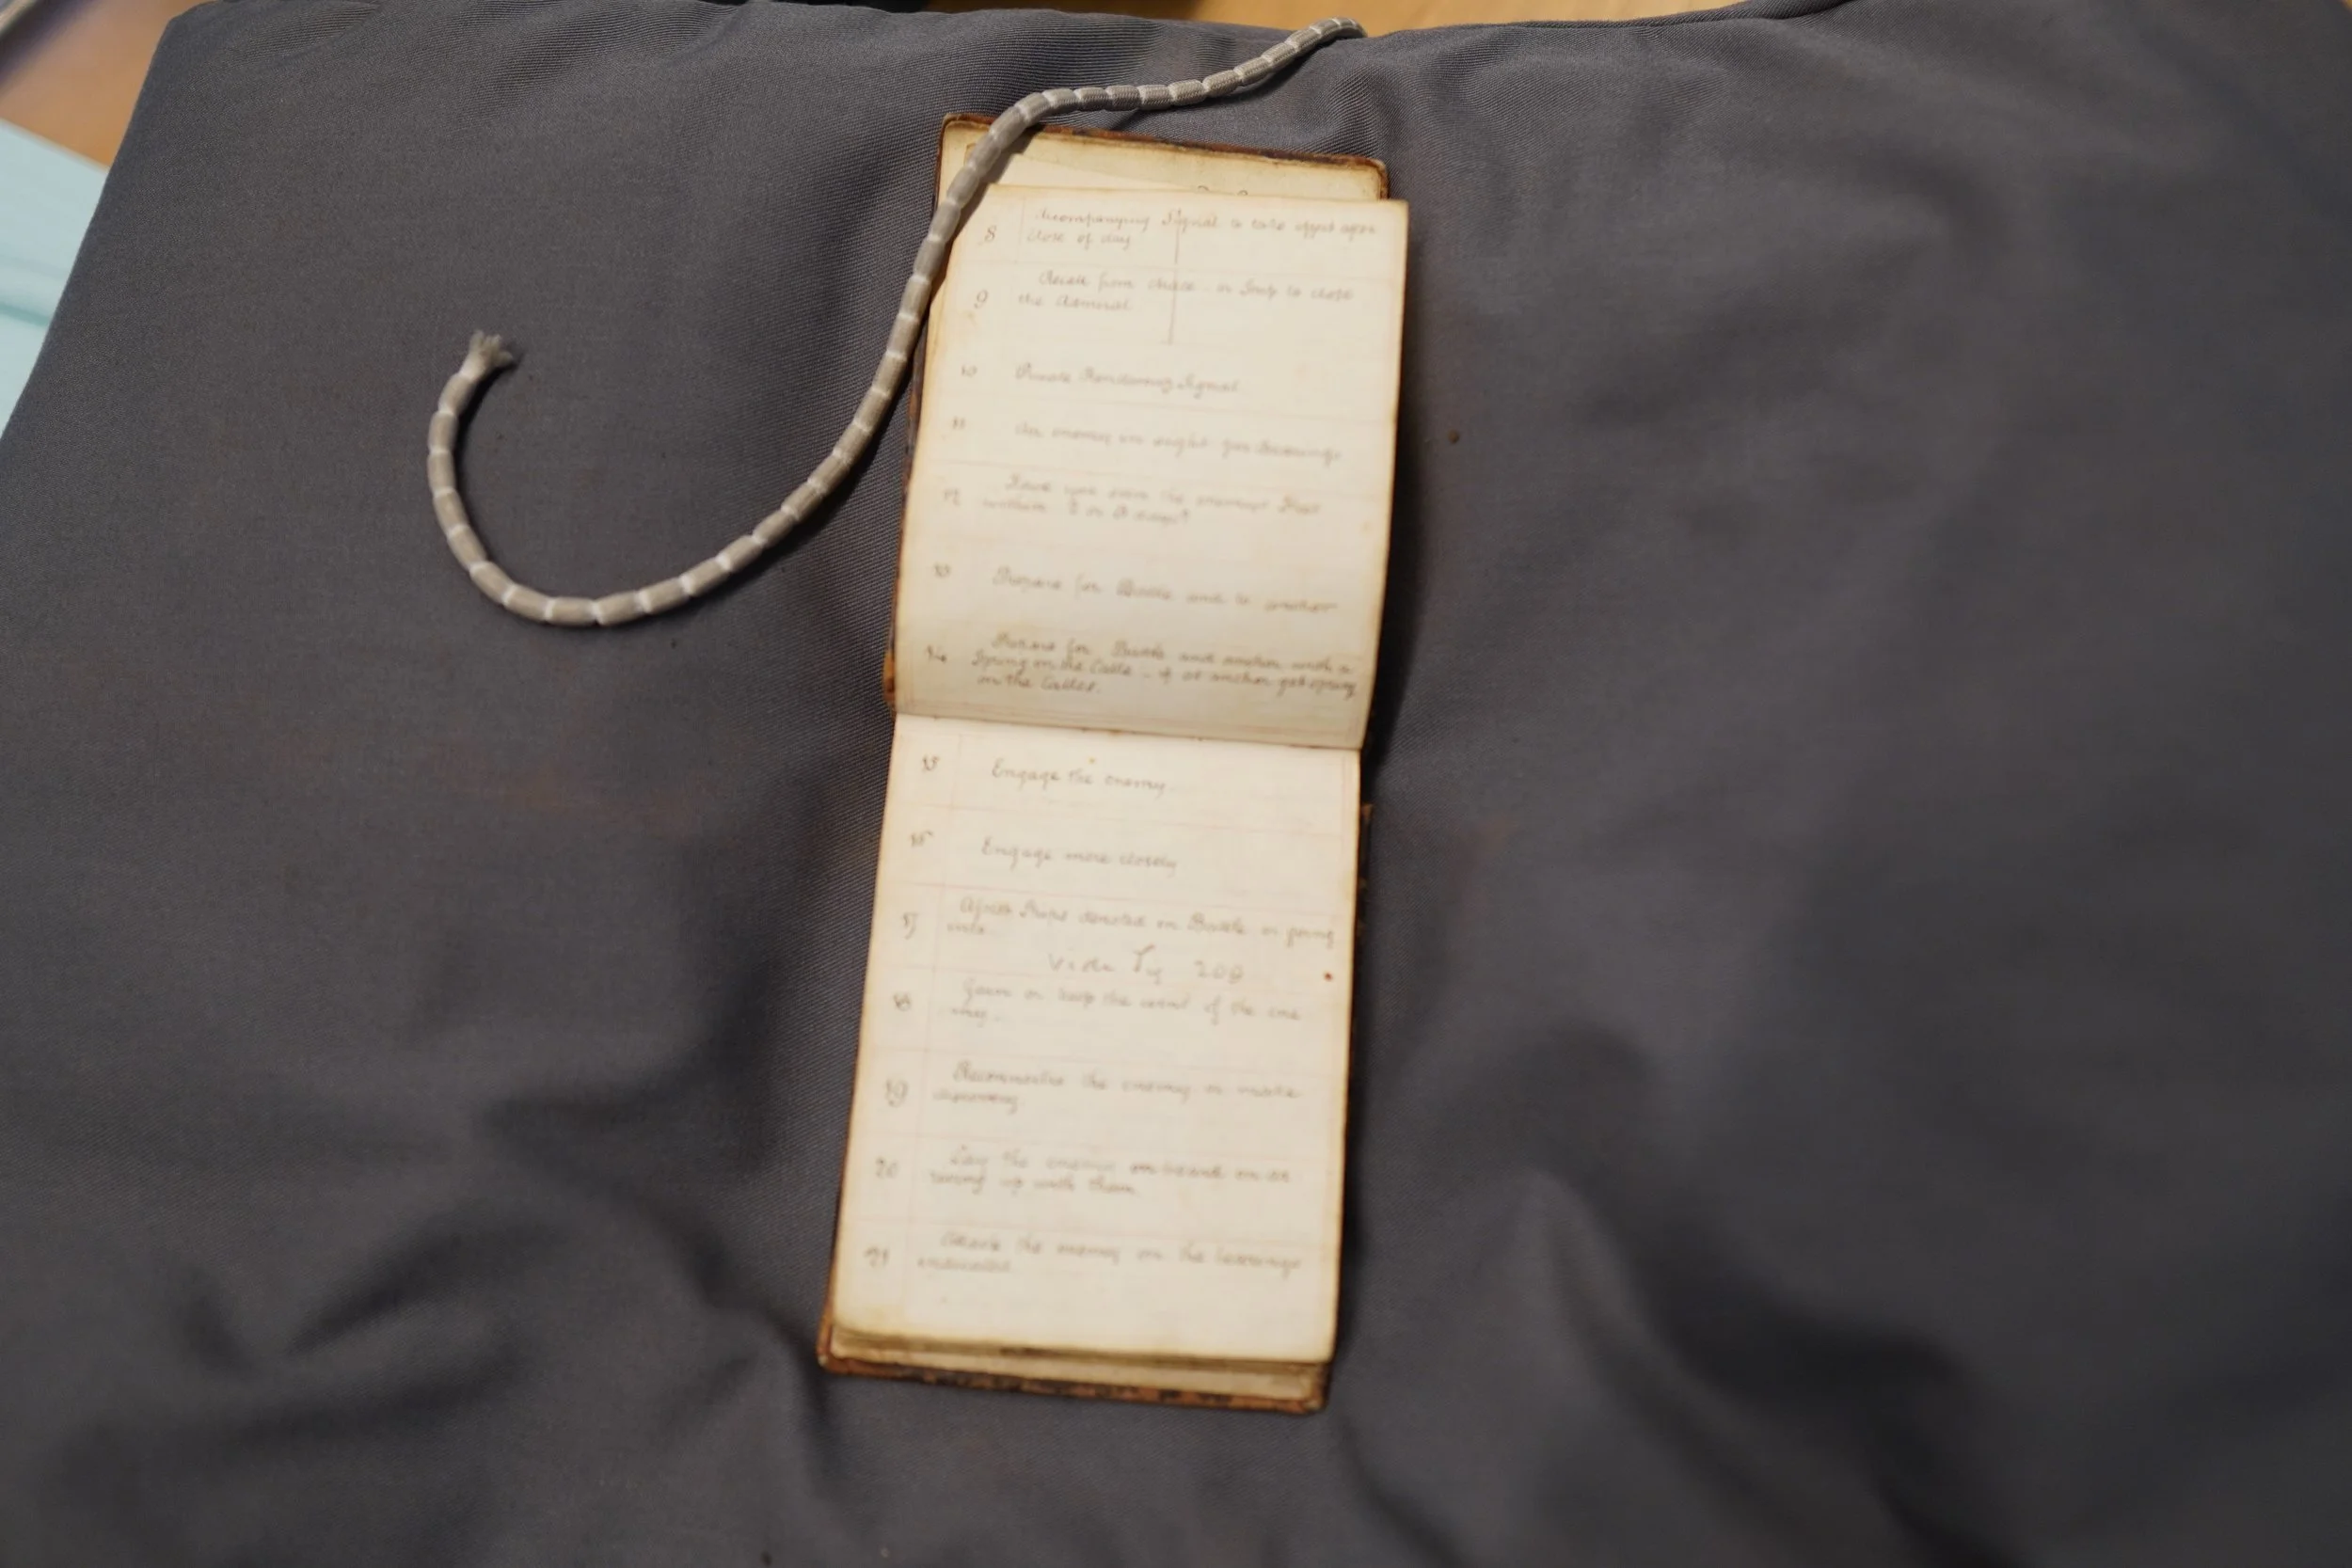 8 Accompanying Signal to take effect after
close of day
9 Desist from chace or Ship to close
the Admiral
10 Private Rendezvous Signal
11 An enemy in sight per Bearings
12 Have you seen the enemys Fleet
within 2 or 3 days?
13 Prepare for Battle and to anchor
14 Prepare for Battle and anchor with a
Spring on the Cable - if at anchor get spring
on the Cables.
15 Engage the enemy
16 Engage more closely
17 Ships denoted in Battle or going
into
Vide Sig 209
18 Gain or keep the wind of the ene
my.
19 Reconnoitre the enemy or make
discovery
20 Lay the enemy on board on ar
riving up with them
21 Attack the enemy on the bearings
indicated